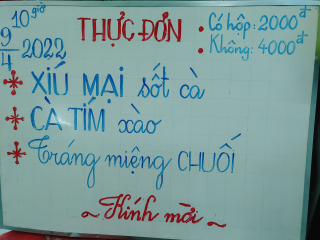 10 giờ
9/4 2022
THỰC ĐƠN
• Có hộp: 2000đ
• Không: 4000đ
* XÍU MẠI sốt cà
* CÀ TÍM xào
* Tráng miệng CHUỐI
~ Kính mời ~